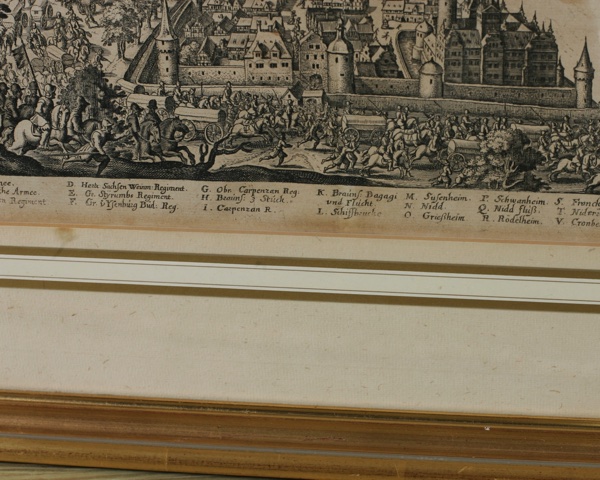 D. Hertz Sachsen Weinm Regiment.
E. Gr. Styrumbs Regiment.
F. Gr. Ysenburg Bud. Reg.
G. Obr. Carpenzan Reg.
H. Brauns. 3 Stück.
I. Carpenzan R.
K. Brauns. Bagagi
und Flucht.
L. Schiffbrucke
M. Susenheim.
N. Nidd.
O Grießheim
P. Schwanheim.
Q. Nidd fluß.
R. Rödelheim.
S. Franck
T. Nider
V. Cronbe
he Armee.
Regiment